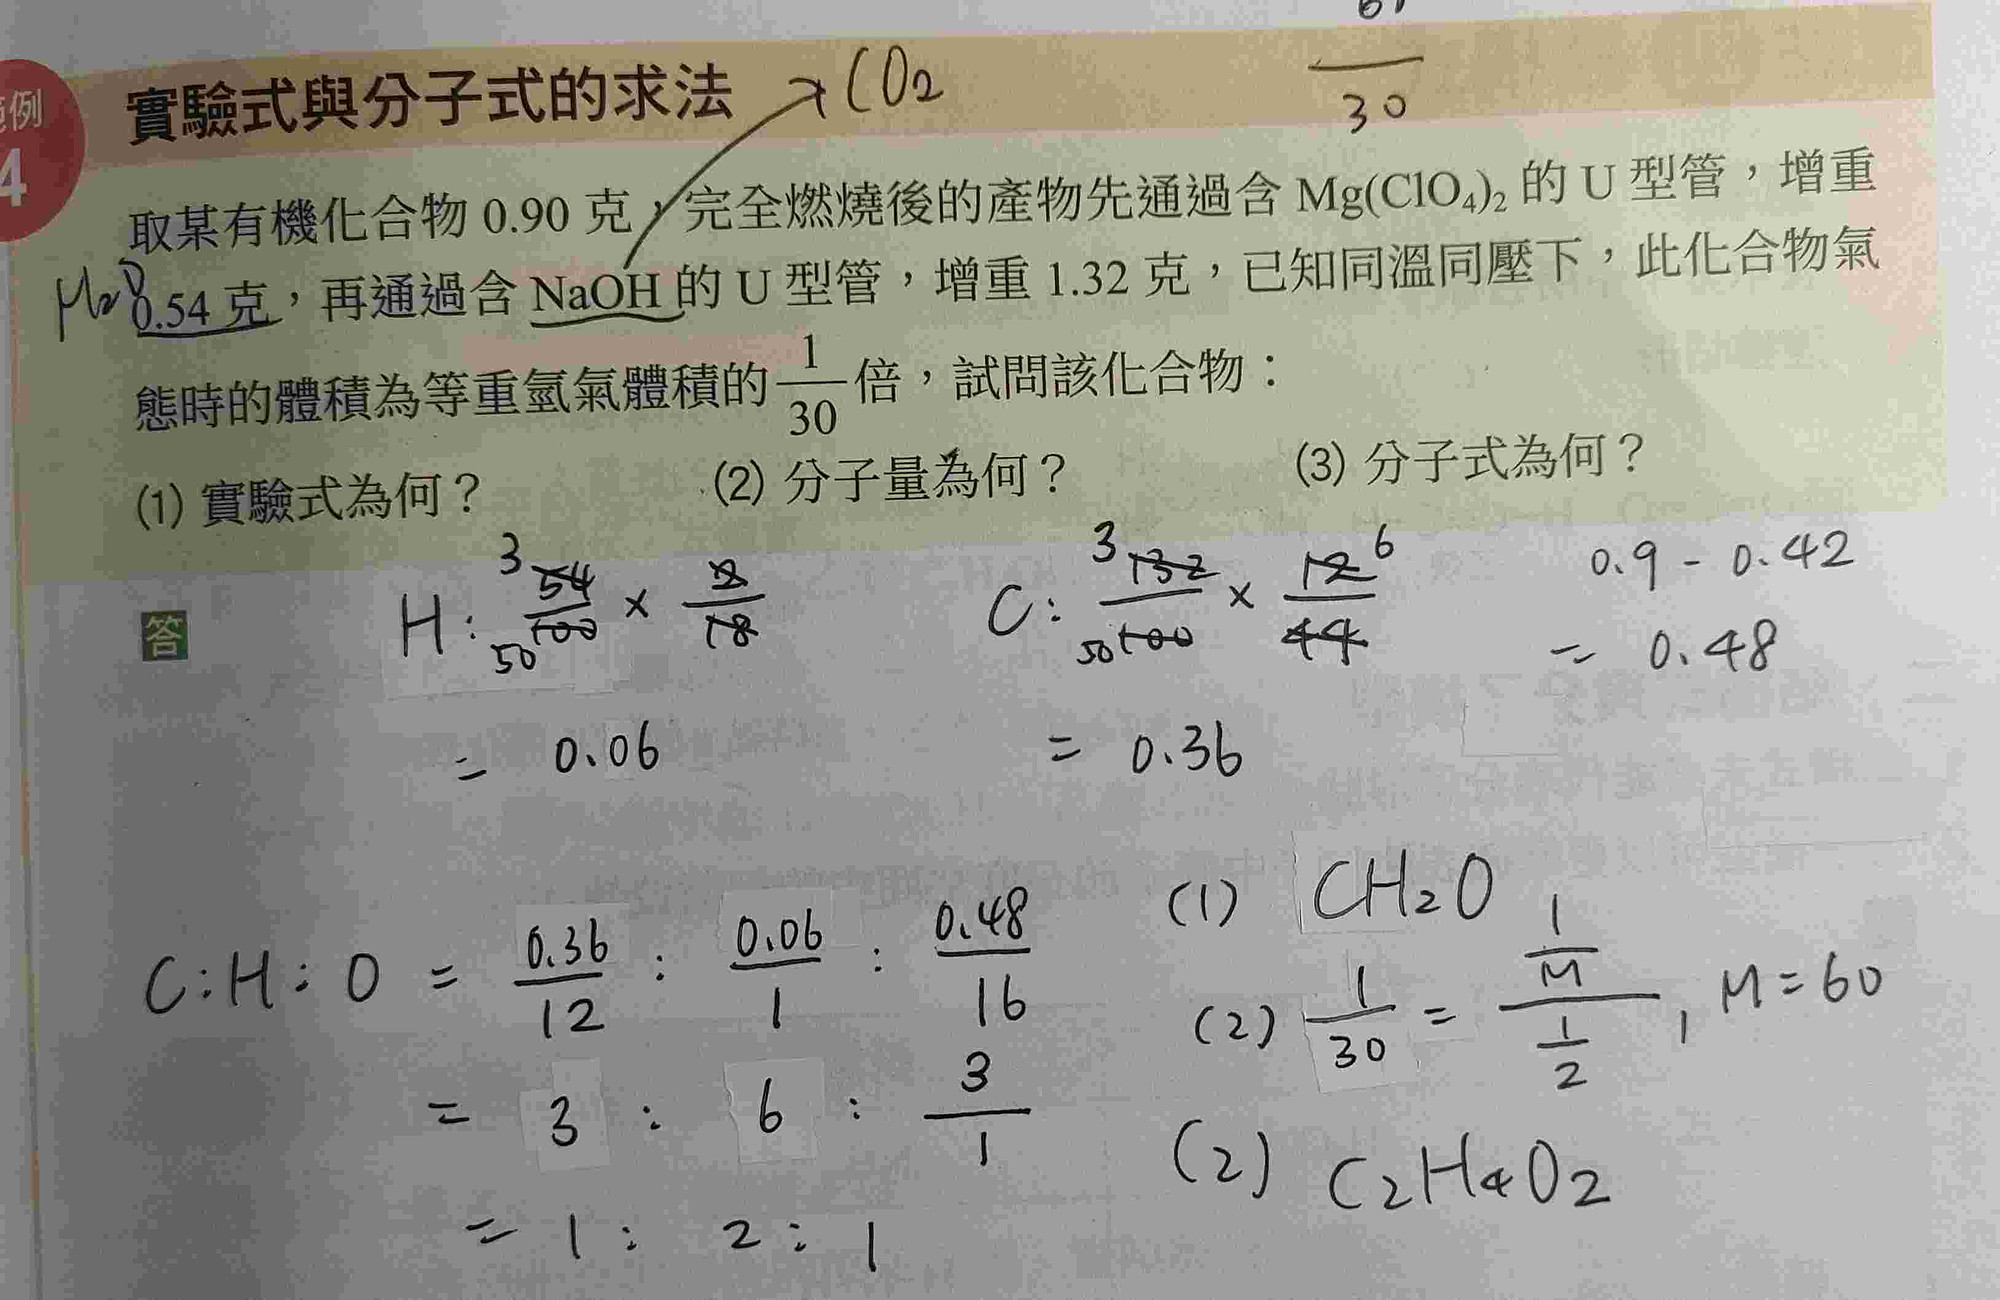 30
範例
4
實驗式與分子式的求法 → CO₂
取某有機化合物 0.90 克，完全燃燒後的產物先通過含 Mg(ClO₄)₂ 的 U 型管，增重
H₂O 0.54 克，再通過含 NaOH 的 U 型管，增重 1.32 克，已知同溫同壓下，此化合物氣
態時的體積為等重氫氣體積的 1/30 倍，試問該化合物：
(1) 實驗式為何？ (2) 分子量為何？ (3) 分子式為何？
答
H: 3 54/100 50 × 2/18
= 0.06
C: 3 132/100 50 × 12/44 6
= 0.36
0.9 - 0.42
= 0.48
C:H:O = 0.36/12 : 0.06/1 : 0.48/16
= 3 : 6 : 3/1
= 1 : 2 : 1
(1) CH₂O
(2) 1/30 = (1/M)/(1/2) , M = 60
(2) C₂H₄O₂